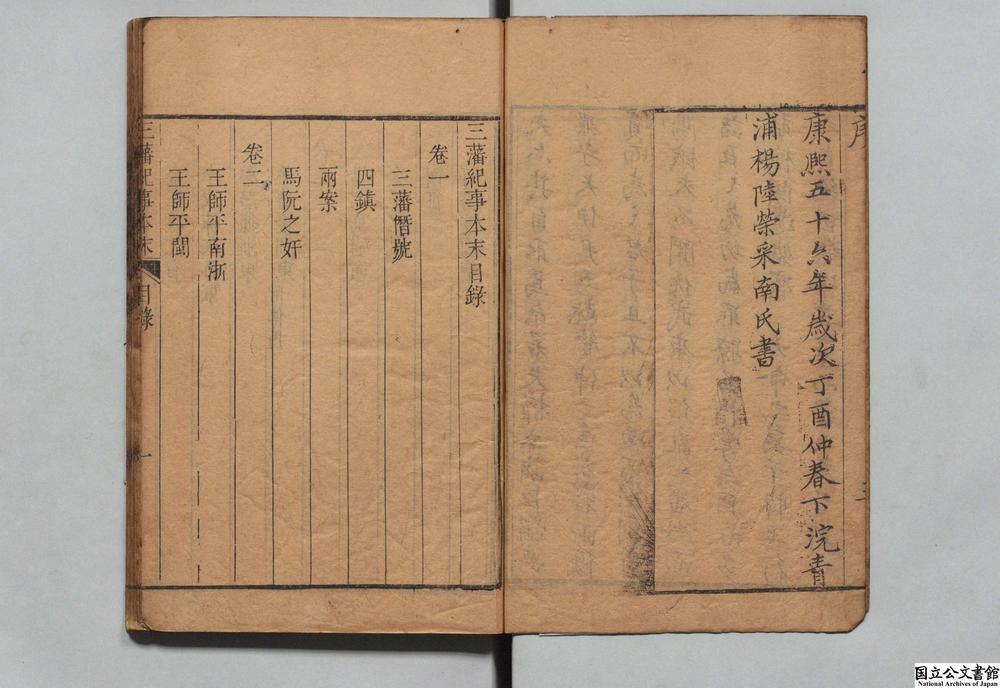 序
康熙五十六年歲次丁酉仲春下浣青
浦楊陸榮采南氏書
三藩紀事本末目錄
卷一
三藩僭號
四鎮
兩案
馬阮之奸
卷二
王師平南浙
王師平閩
三藩紀事本末 目錄 一
国立公文書館
National Archives of Japan